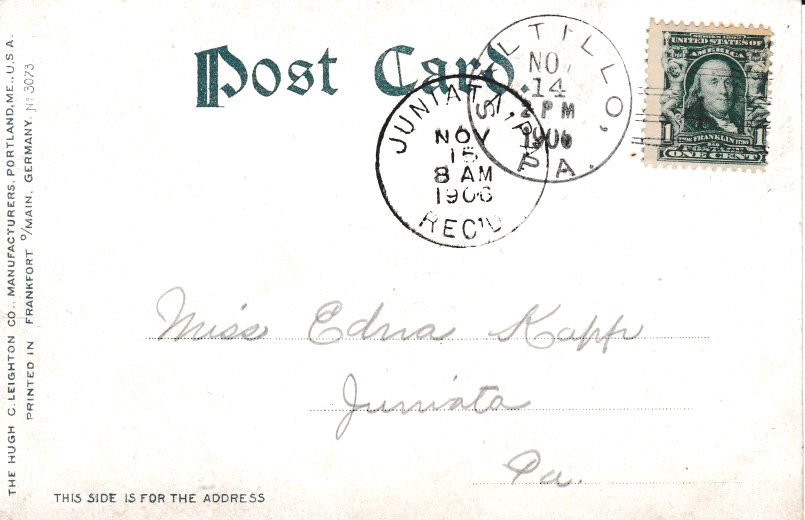 Post Card.
SALTILLO, PA.
NOV
14
2 PM
1906
JUNIATA, PA.
NOV
15
8 AM
1906
REC'D
SERIES 1902
UNITED STATES OF
AMERICA
1 FRANKLIN 1
POSTAGE
ONE CENT
Miss Edna Kapp
Juniata
Pa.
THIS SIDE IS FOR THE ADDRESS
THE HUGH C. LEIGHTON CO., MANUFACTURERS, PORTLAND, ME., U.S.A.
PRINTED IN FRANKFORT O/MAIN, GERMANY. No 3073